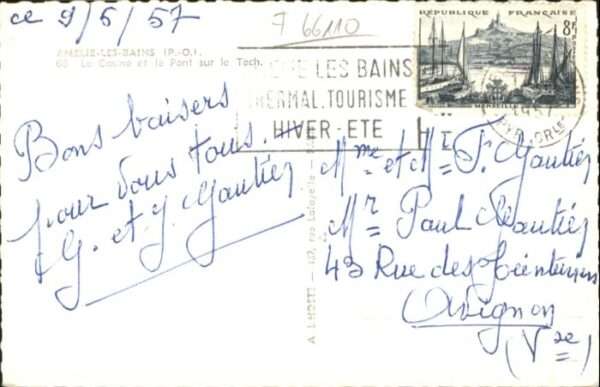 ce 9/5/57
7 66110
RÉPUBLIQUE FRANÇAISE
8F
AMÉLIE-LES-BAINS (P.-O.)
66 Le Casino et le Pont sur le Tech.
LES BAINS
THERMAL.TOURISME
HIVER-ETE
MARSEILLE
Bons baisers
pour vous tous.
G. et J. Gautier
Mme et M F. Gautier
Mr Paul Gautier
43 Rue des Teinturiers
Avignon
(Vse)
rue Lafayette